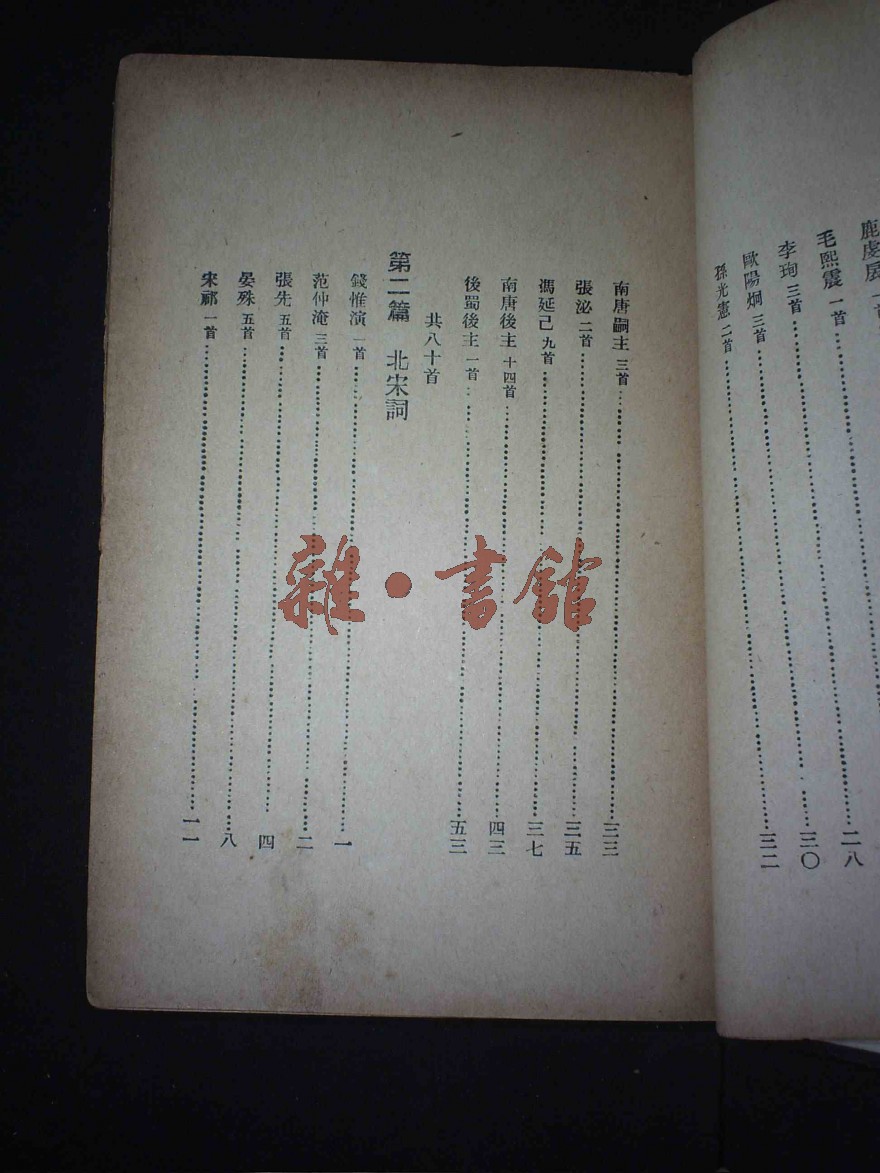 毛熙震 一首 二八
李珣 三首 三〇
歐陽炯 三首 三二
孫光憲 二首
南唐嗣主 三首 三三
張泌 二首 三五
馮延己 九首 三七
南唐後主 十四首 四三
後蜀後主 一首 五三
共八十首
第二篇 北宋詞
錢惟演 一首 一
范仲淹 三首 二
張先 五首 四
晏殊 五首 八
宋祁 一首 一一
雜·書館